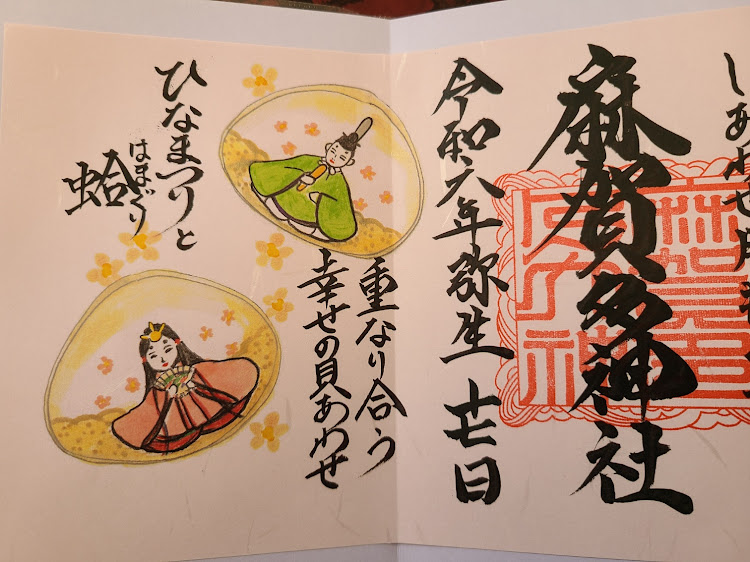 しあわせ
麻賀多神社
令和六年弥生十七日
重なり合う
幸せの貝あわせ
ひなまつりと
はまぐり
蛤